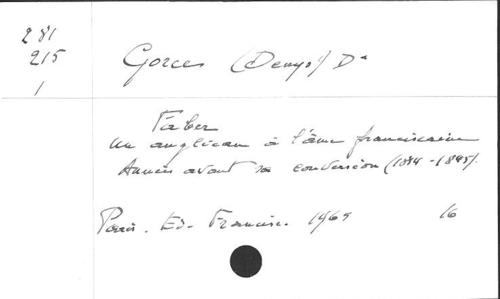 281
215
1
Gorces (Denys) Da
Faber
un anglican à l'âme franciscaine
Années avant sa conversion (1814-1845).
Paris. Ed. Francisc. 1965 16